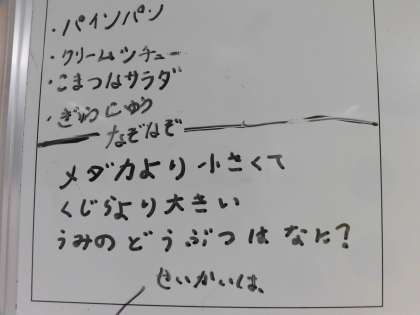 ・パインパン
・クリームシチュー
・こまつなサラダ
・ぎゅうにゅう
なぞなぞ
メダカより小さくて
くじらより大きい
うみのどうぶつはなに？
せいかいは、